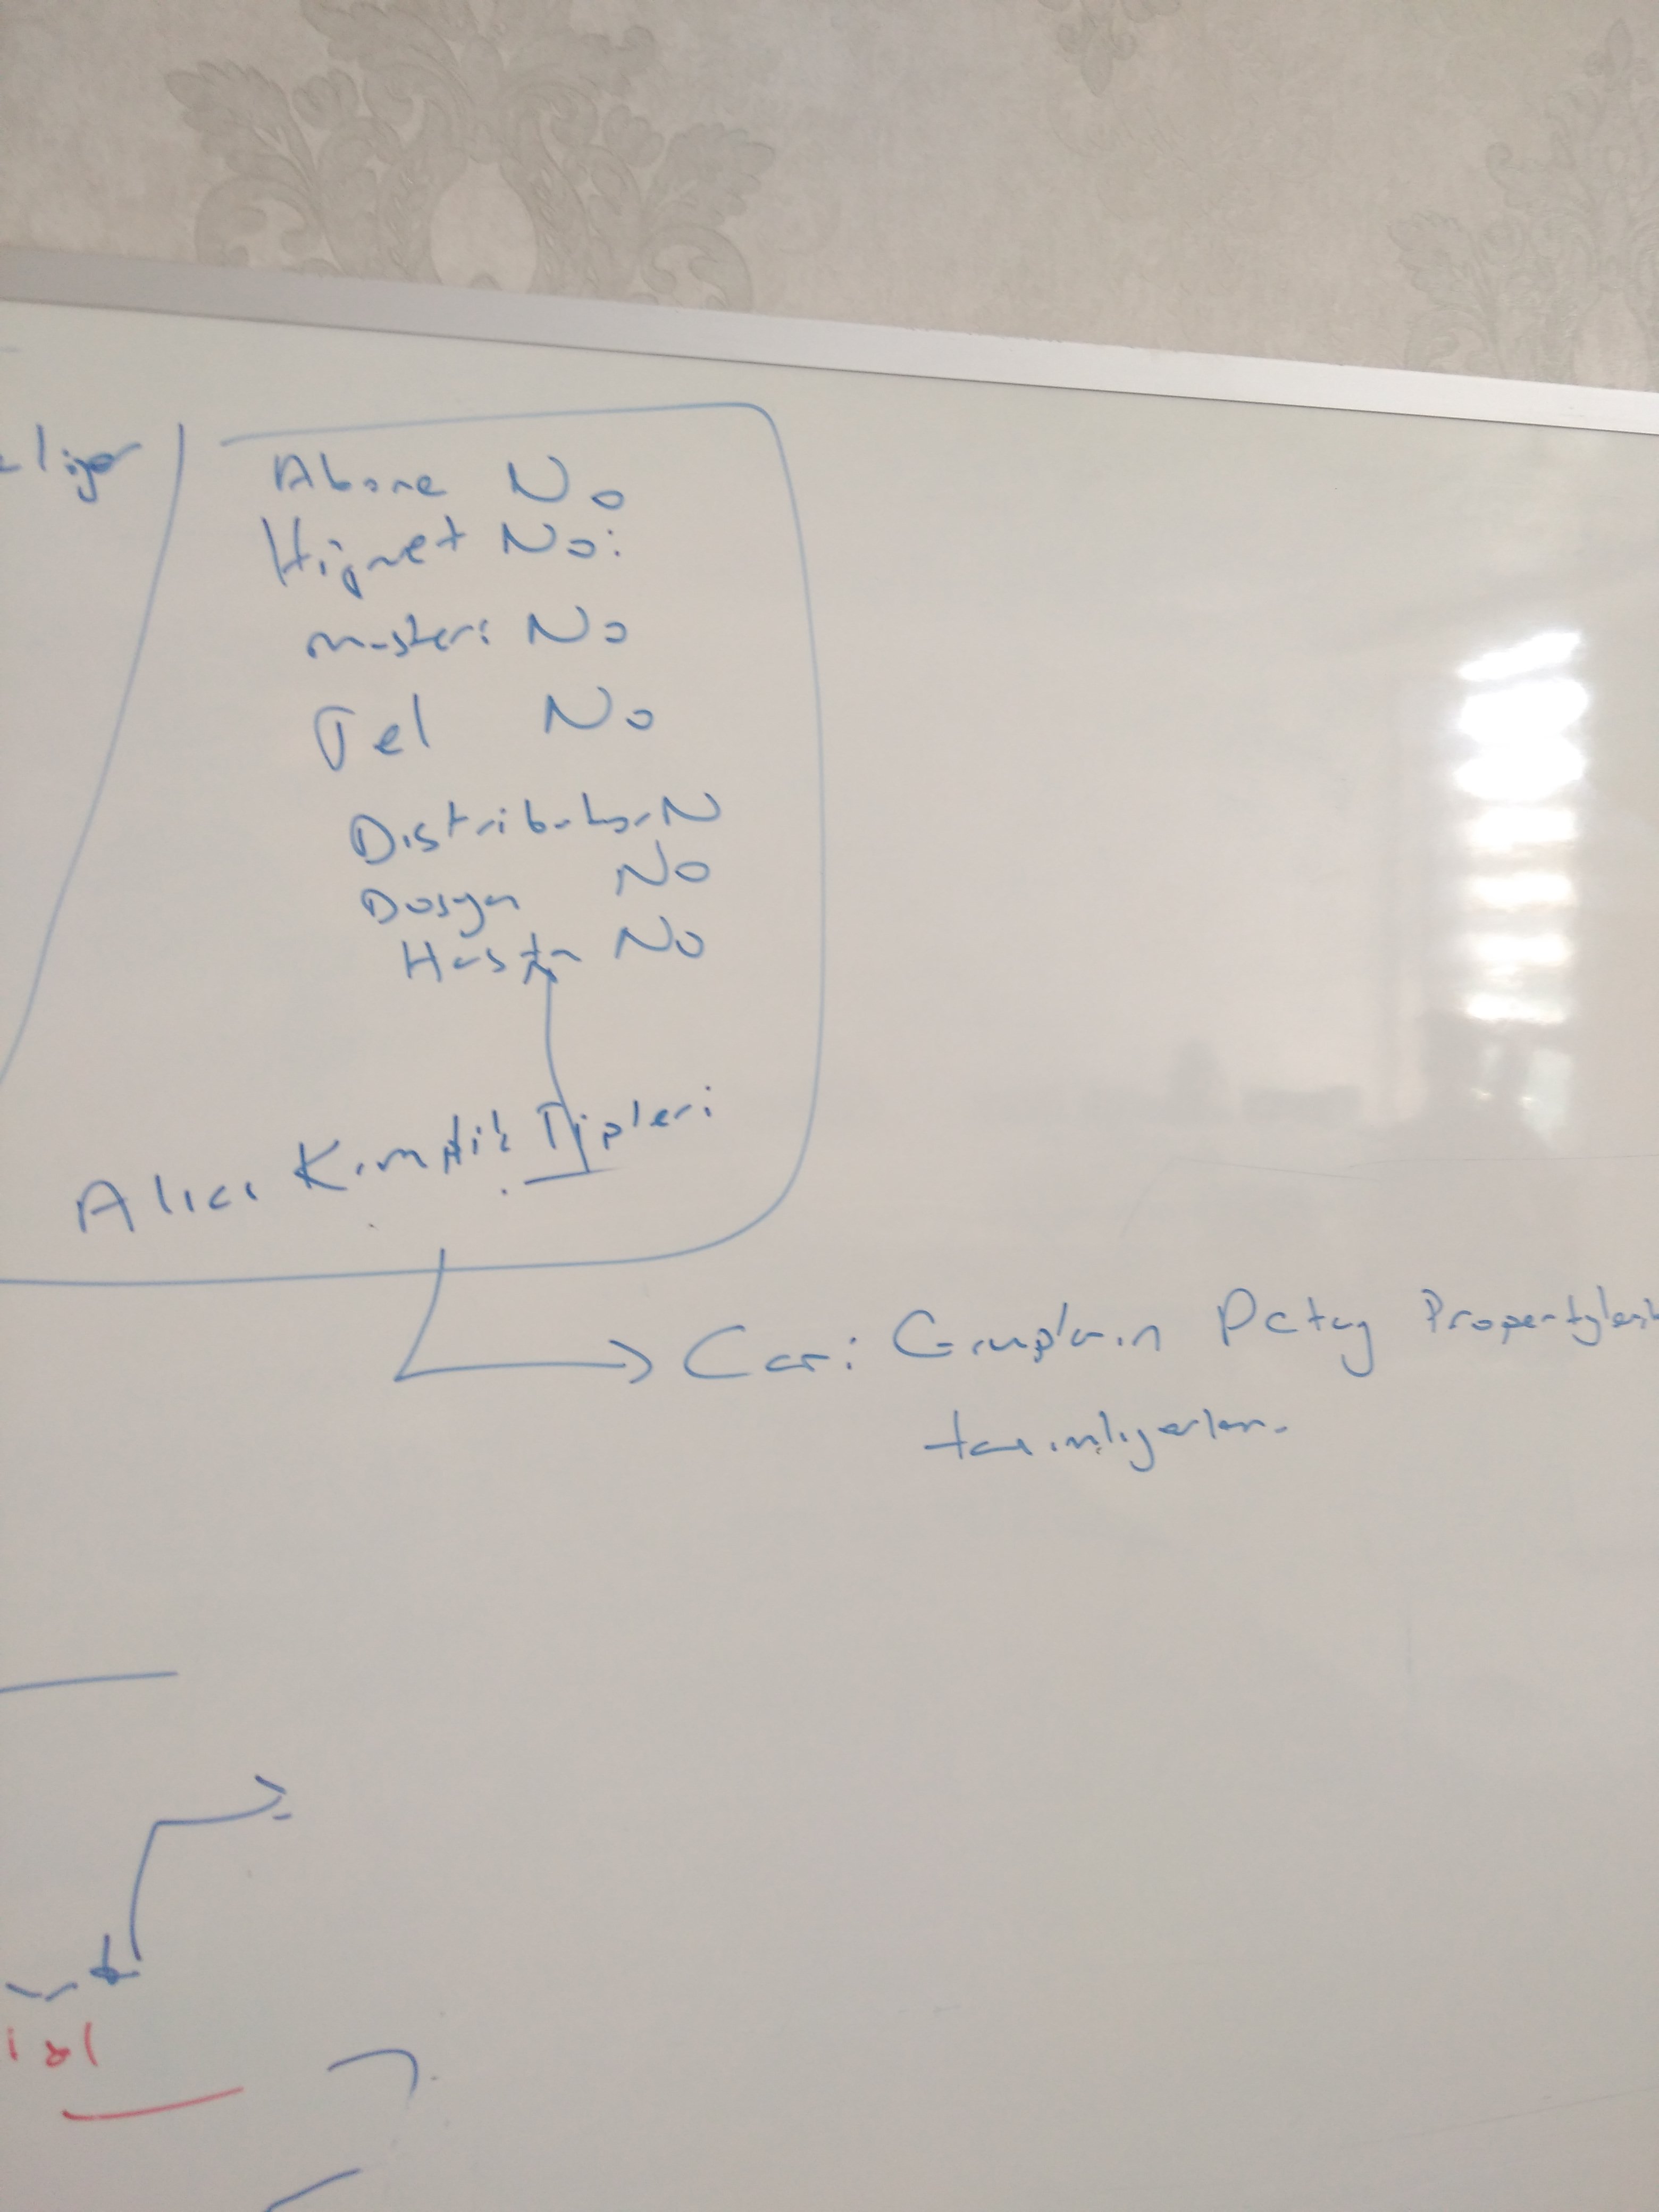 Abone No
Hizmet No:
müşteri No
Tel No
Distribütör N
Dosya No
Hasta No
Alıcı Kimlik Tipleri
Cari Grupların Patay Propertyleri
tanımlıyorlar.